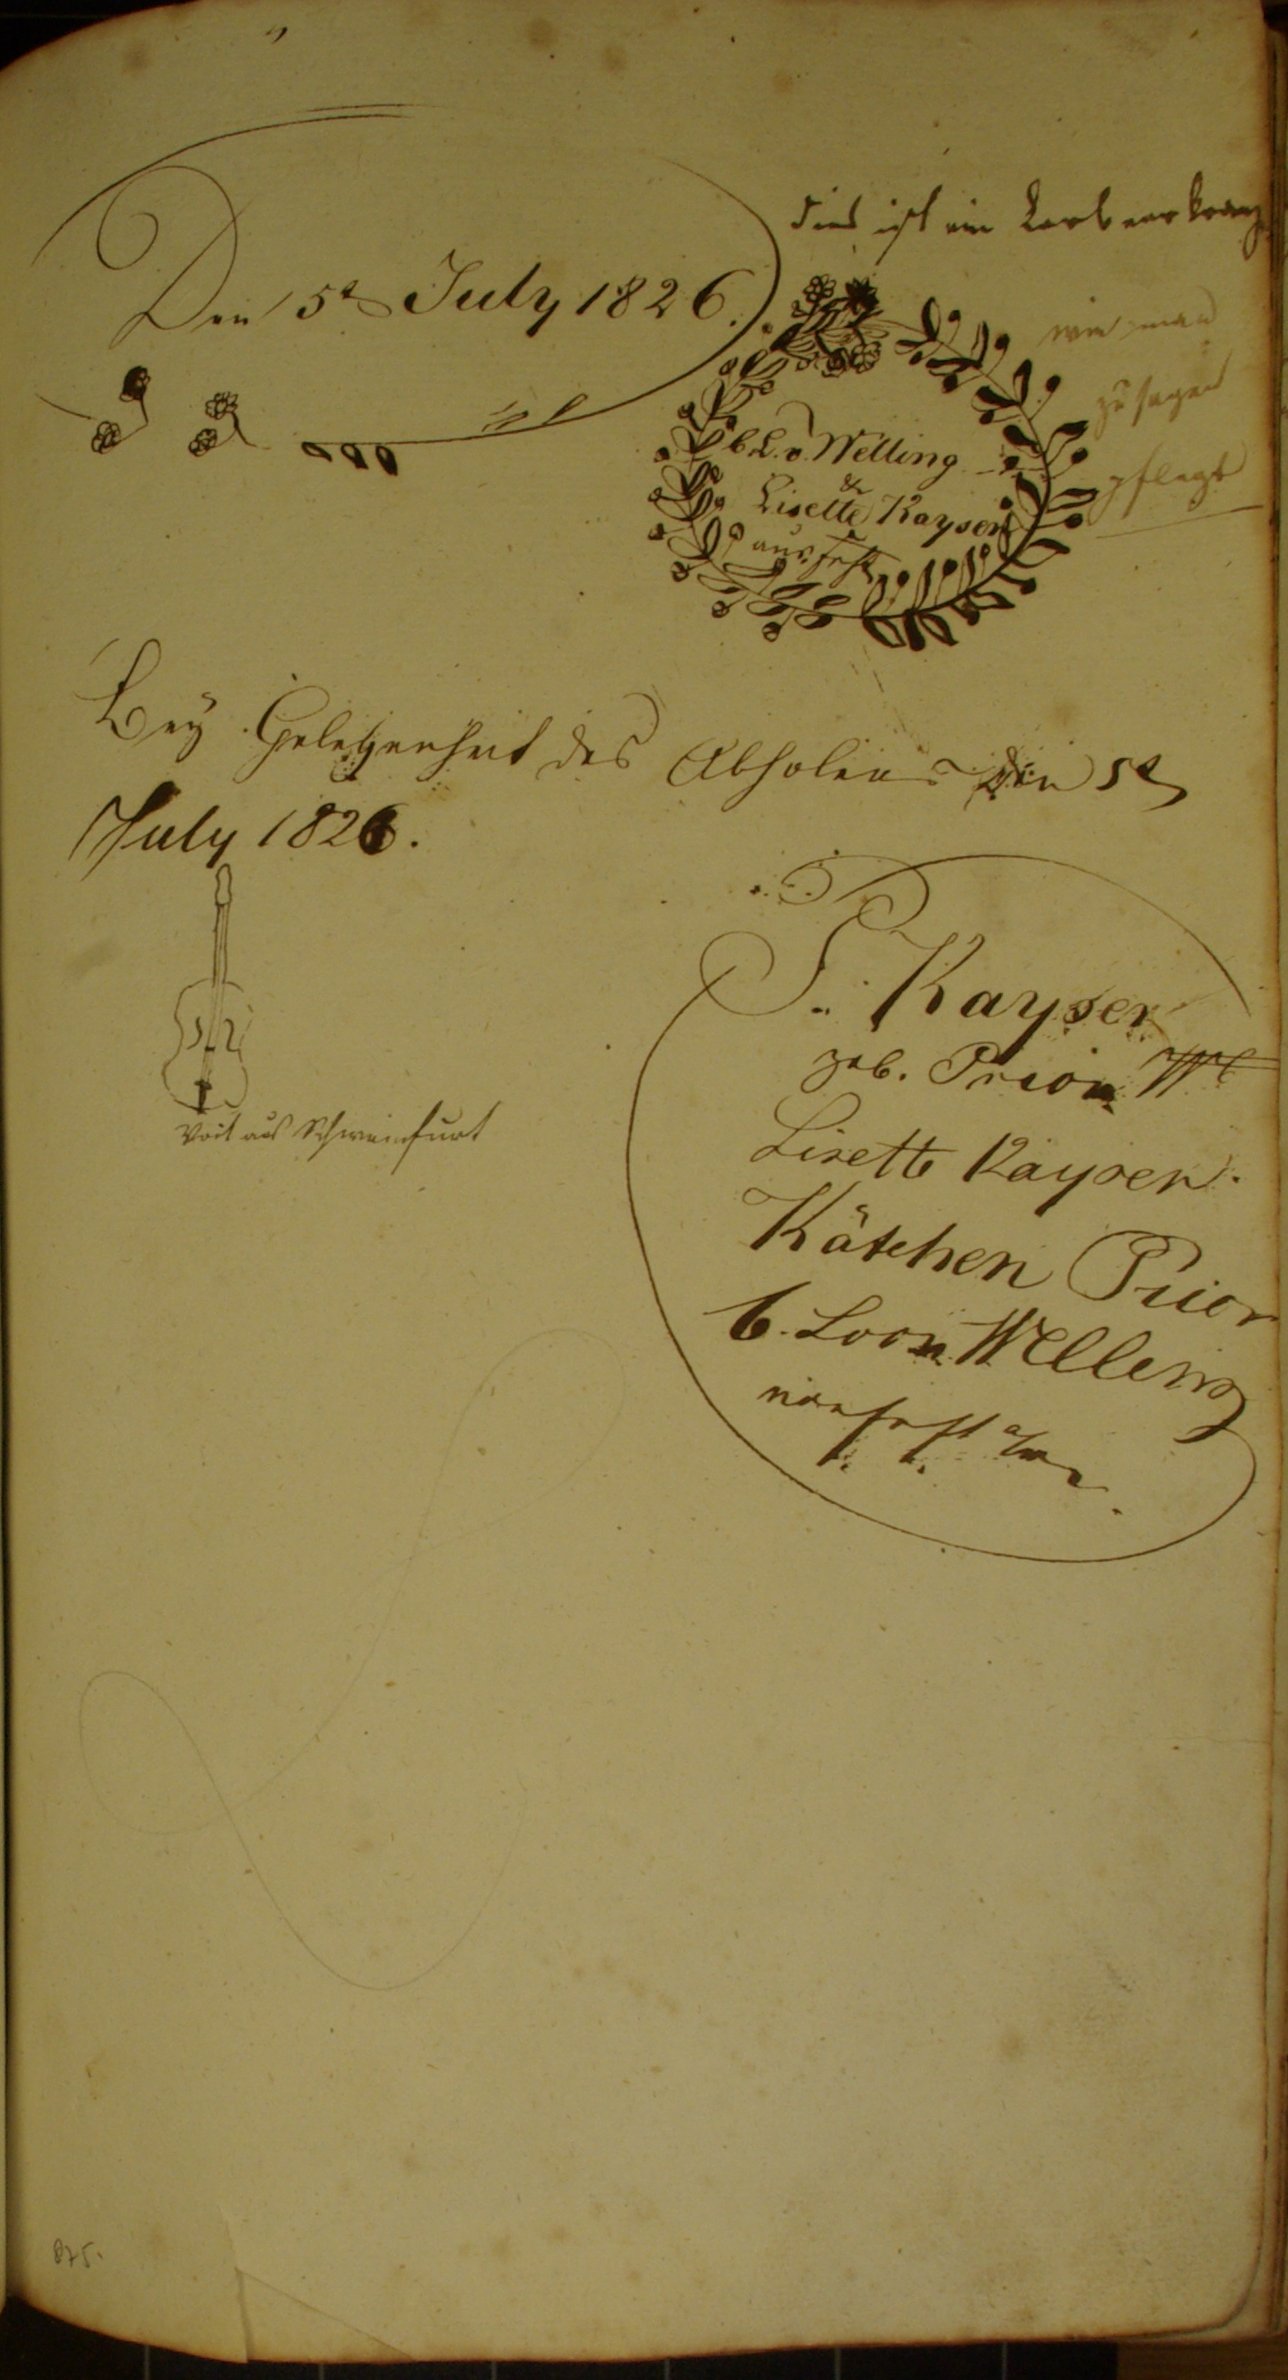 Den 5t July 1826.
Dies ist ein Lorbeerkranz
wie man
zu sagen
pflegt
C. L. v. Welling
&
Lisette Kayser
Bey Gelegenheit des Abholens den 5t
July 1826.
Voit aus Schweinfurt
S. Kayser
geb. Prior
Lisette Kayser.
Kätchen Prior
C. Loon Welling
875.